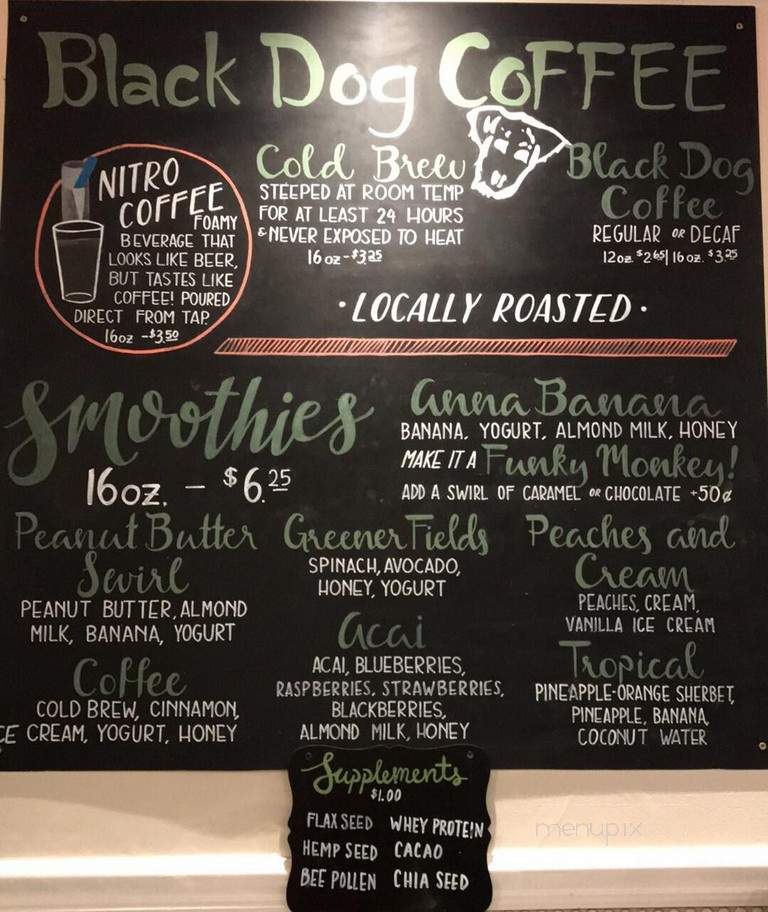 Black Dog COFFEE
NITRO
COFFEE
FOAMY
BEVERAGE THAT
LOOKS LIKE BEER,
BUT TASTES LIKE
COFFEE! POURED
DIRECT FROM TAP.
16oz - $3.50
Cold Brew
STEEPED AT ROOM TEMP
FOR AT LEAST 24 HOURS
& NEVER EXPOSED TO HEAT
16 oz - $3.25
Black Dog
Coffee
REGULAR or DECAF
12oz. $2.65 | 16 oz. $3.25
· LOCALLY ROASTED ·
Smoothies
16oz. - $6.25
Anna Banana
BANANA, YOGURT, ALMOND MILK, HONEY
MAKE IT A Funky Monkey!
ADD A SWIRL OF CARAMEL or CHOCOLATE +50¢
Peanut Butter
Swirl
PEANUT BUTTER, ALMOND
MILK, BANANA, YOGURT
Coffee
COLD BREW, CINNAMON,
ICE CREAM, YOGURT, HONEY
Greener Fields
SPINACH, AVOCADO,
HONEY, YOGURT
Acai
ACAI, BLUEBERRIES,
RASPBERRIES, STRAWBERRIES,
BLACKBERRIES,
ALMOND MILK, HONEY
Peaches and
Cream
PEACHES, CREAM,
VANILLA ICE CREAM
Tropical
PINEAPPLE-ORANGE SHERBET,
PINEAPPLE, BANANA,
COCONUT WATER
Supplements
$1.00
FLAX SEED WHEY PROTEIN
HEMP SEED CACAO
BEE POLLEN CHIA SEED
menupix